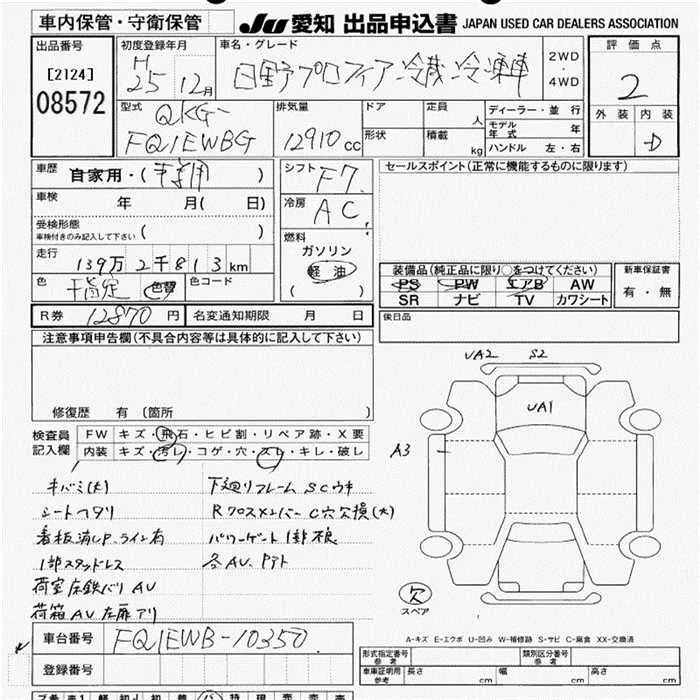 車内保管・守衛保管
JU 愛知 出品申込書 JAPAN USED CAR DEALERS ASSOCIATION
出品番号
[2124]
08572
初度登録年月
H
25 12月
車名・グレード
日野プロフィア冷蔵冷凍車
2WD
・
4WD
評価点
2
外装 内装
D
型式
QKG-
FQ1EWBG
排気量
12910 cc
ドア
形状
定員
人
積載
kg
ディーラー・並行
モデル年式 年
ハンドル 左・右
車歴
自家用・( 事業用 )
車検
年 月( 日)
受検形態
車検付きのみ記入して下さい
( )
走行
139万2千813km
色
色替
色コード
シフト
F7
冷房
AC
燃料
ガソリン
軽油
( )
セールスポイント(正常に機能するものに限ります)
装備品(純正品に限り○をつけてください)
PS PW エアB AW
SR ナビ TV カワシート
新車保証書
有・無
後日品
R券 12870 円
名変通知期限 月 日
注意事項申告欄(不具合内容等は具体的に記入して下さい)
修復歴 有 〔箇所 〕
検査員
記入欄
FW キズ・飛石・ヒビ割・リペア跡・X要
内装 キズ・汚レ・コゲ・穴・スレ・キレ・破レ
キバミ(大)
シートヘタリ
看板消し P、ライン有
1部スタッドレス
荷室床鉄バリ AU
荷箱AU 左扉アリ
下廻りフレームSCウキ
Rクロスメンバー C穴欠損(大)
パワーゲート1部不良
各AU、Pアト
UA2 S2
UA1
A3
欠
スペア
A-キズ E-エクボ U-凹み W-補修跡 S-サビ C-腐食 XX-交換済
車台番号
FQ1EWB-10350
登録番号
形式指定番号
参考
類別区分番号
参考
車庫証明用
参考
長さ cm 幅 cm 高さ cm